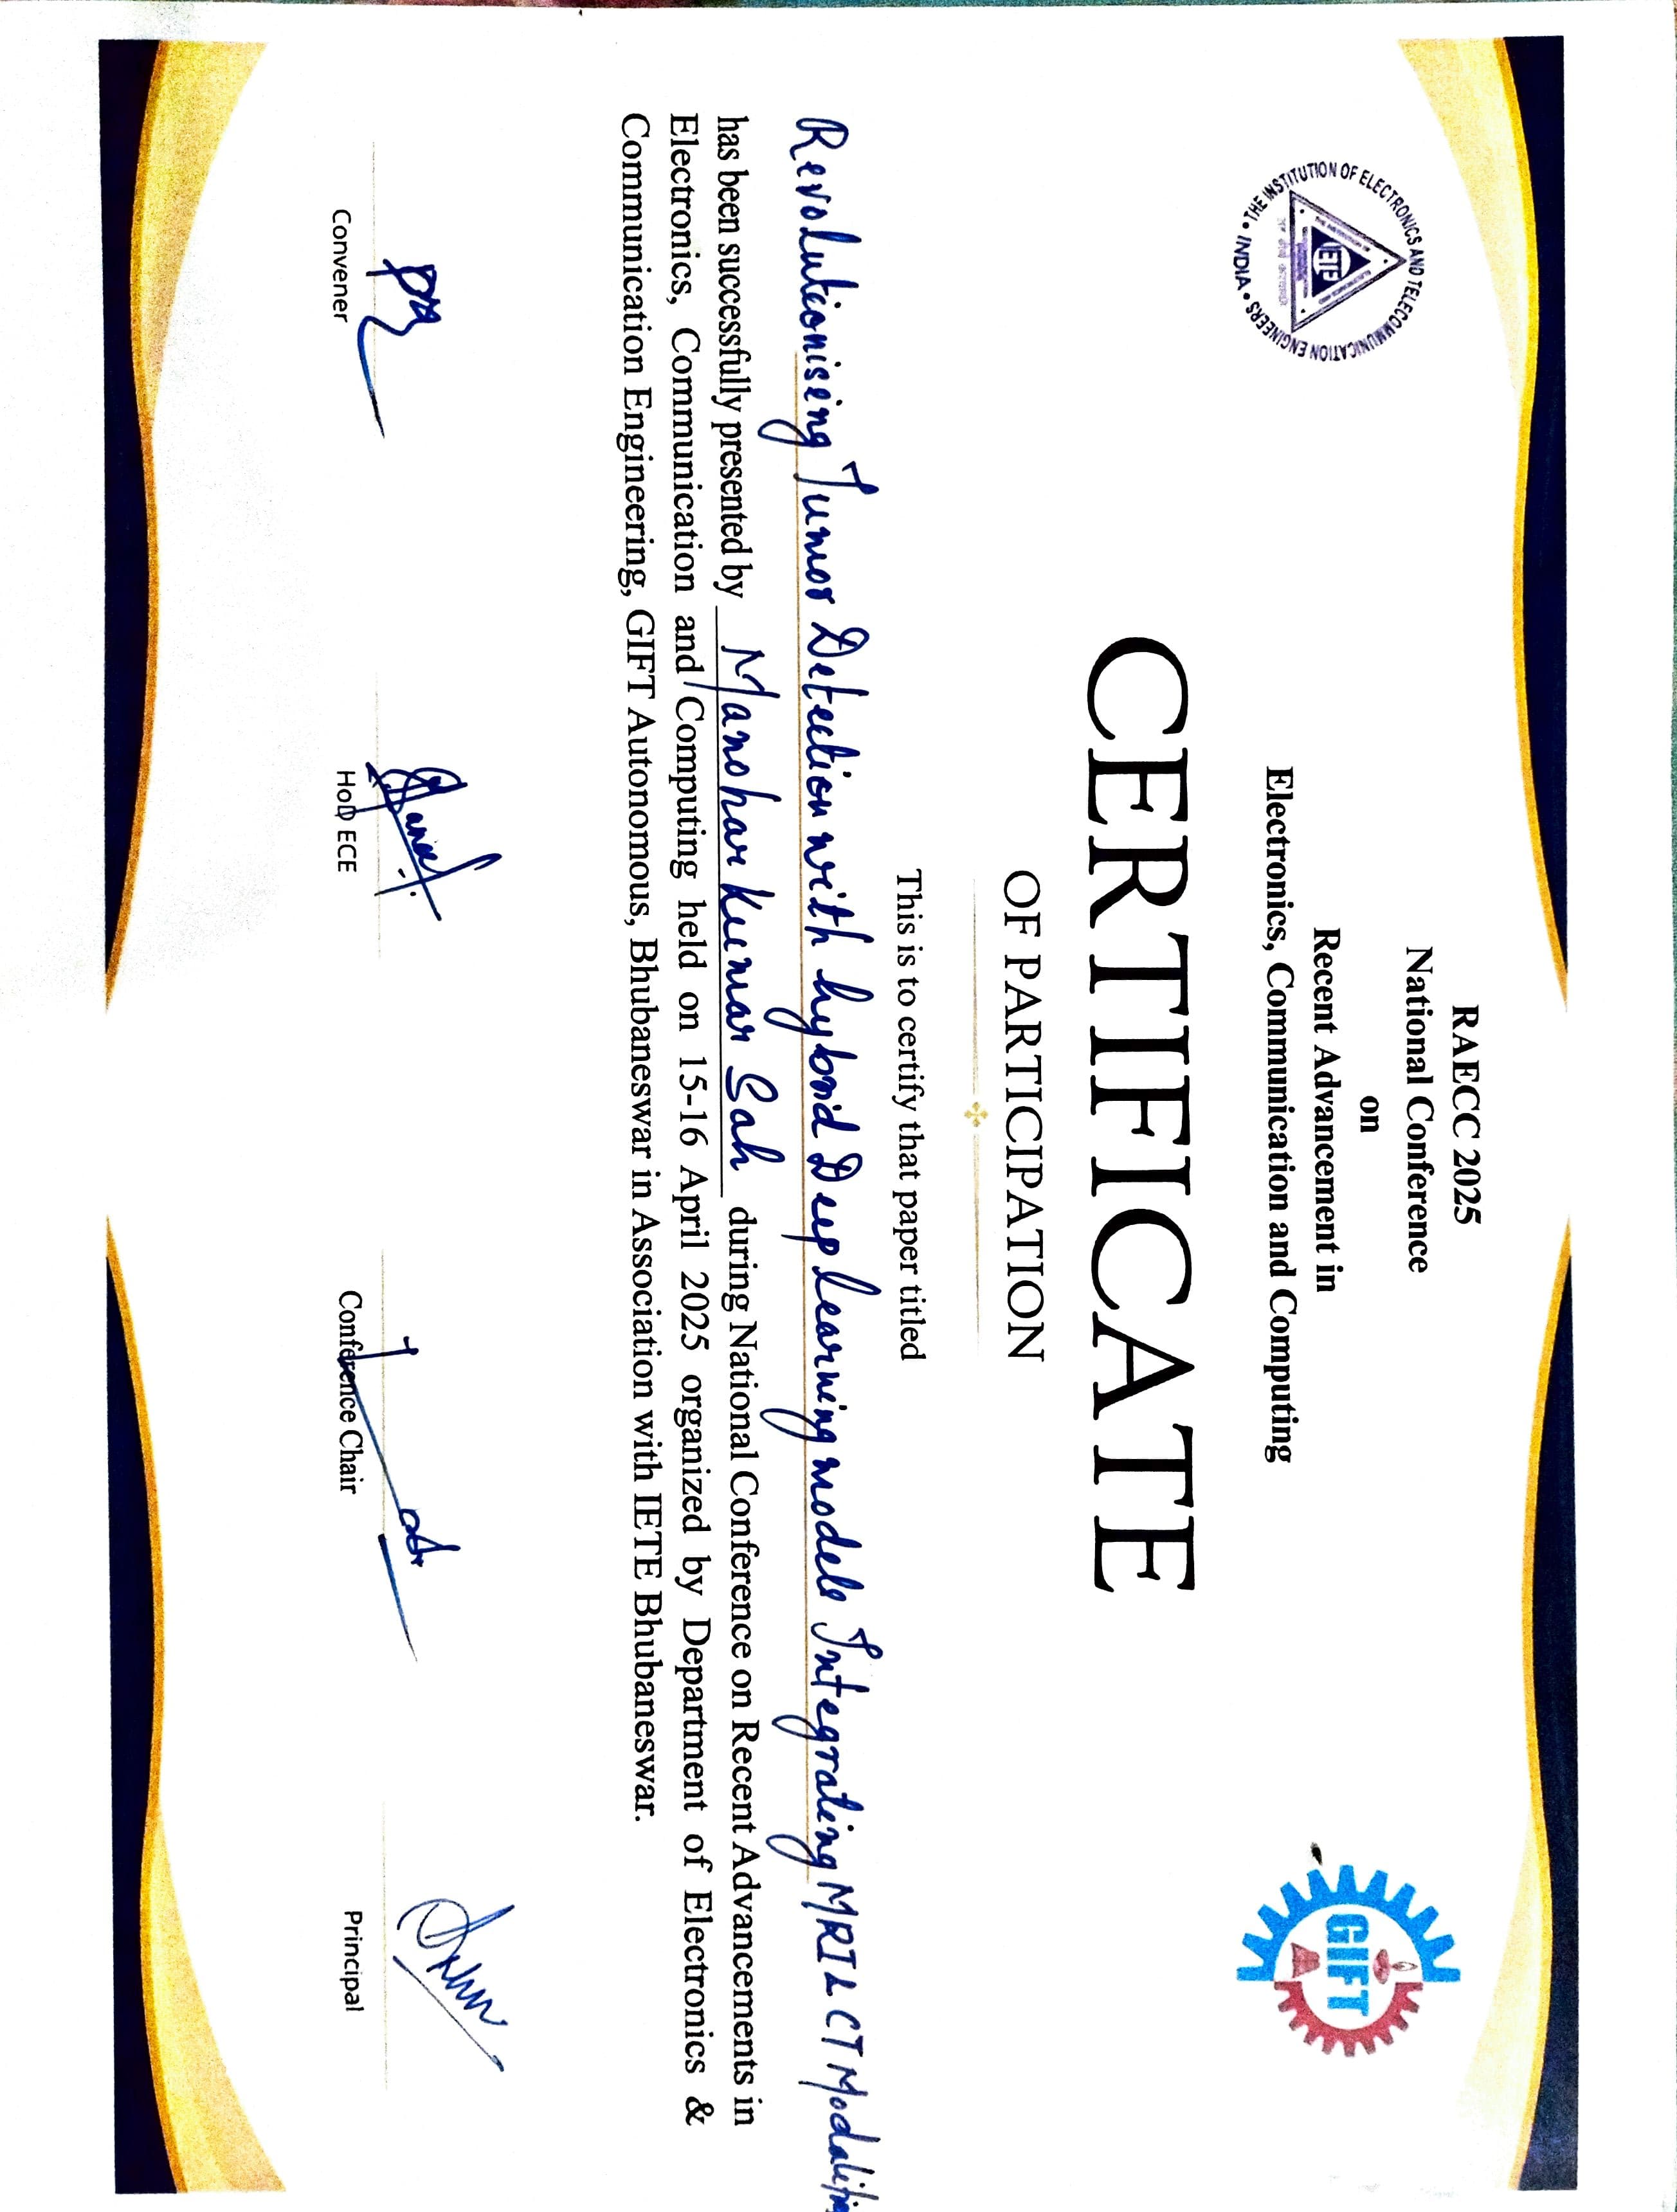 RAECC 2025
National Conference
on
Recent Advancement in
Electronics, Communication and Computing
THE INSTITUTION OF ELECTRONICS AND TELECOMMUNICATION ENGINEERS • INDIA •
IETE
GIFT
CERTIFICATE
OF PARTICIPATION
This is to certify that paper titled
Revolutionising Tumor Detection with hybrid Deep learning models Integrating MRI & CT
has been successfully presented by Manohar Kumar Sah during National Conference on Recent Advancements in
Electronics, Communication and Computing held on 15-16 April 2025 organized by Department of Electronics &
Communication Engineering, GIFT Autonomous, Bhubaneswar in Association with IETE Bhubaneswar.
Convener
HoD ECE
Conference Chair
Principal